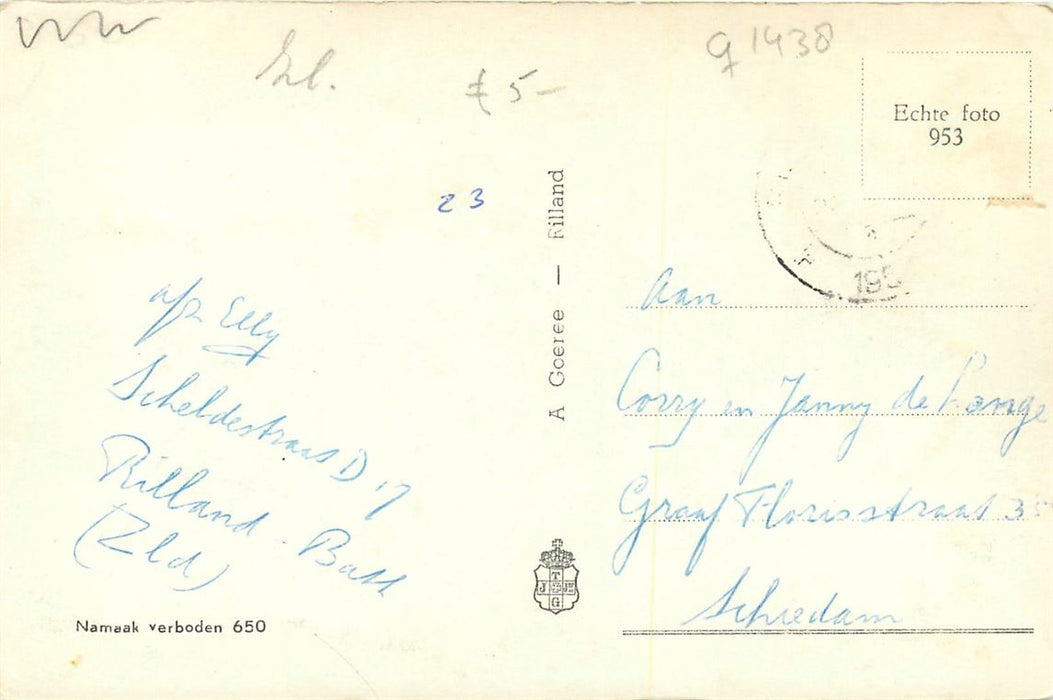 Zl.
£ 5-
q 1438
Echte foto
953
23
A Goeree — Rilland
195
afz Elly
Scheldestraat D 17
Rilland - Bath
(Zld)
Namaak verboden 650
T
J JZN
G
Aan
Corry en Janny de Lange
Graaf Florisstraat 35
Schiedam